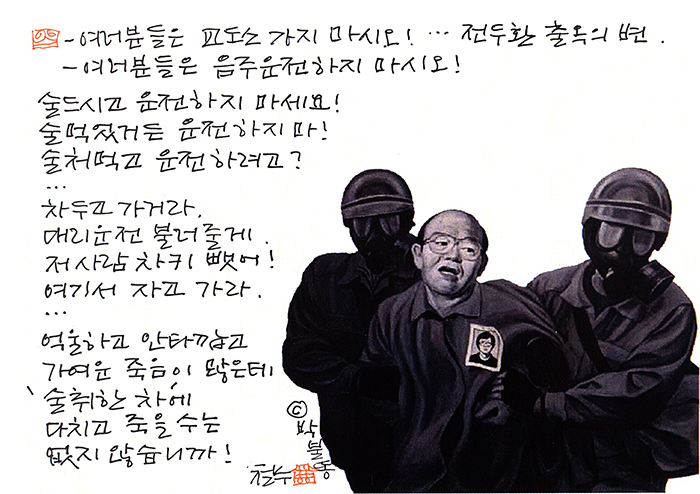 -여러분들은 교도소 가지 마시오! … 전두환 출옥의 변.
-여러분들은 음주운전하지 마시오!
술드시고 운전하지 마세요!
술먹었거든 운전하지마!
술처먹고 운전하려고?
…
차두고 가거라.
대리운전 불러줄게.
저사람 차키 뺏어!
여기서 자고 가라.
…
억울하고 안타깝고
가여운 죽음이 많은데
술취한 차에
다치고 죽을 수는
없지 않습니까!
ⓒ박불똥
철수